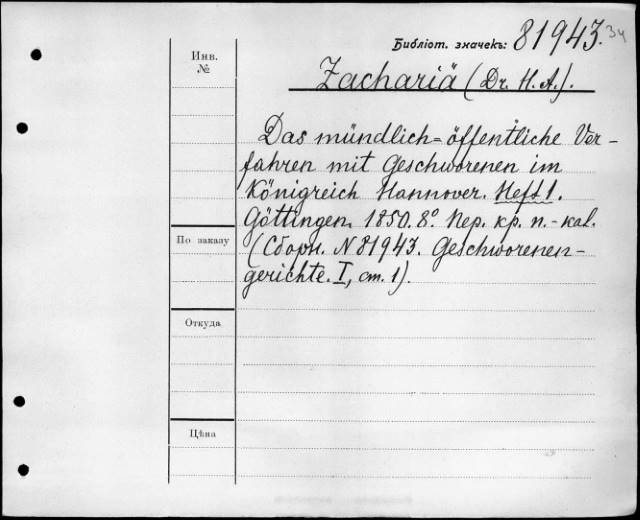 Библіот. значекъ: 81943. 34
Инв.
№
Zachariä (Dr. H. A.).
Das mündlich=öffentliche Ver-
fahren mit Geschworenen im
Königreich Hannover. Heft 1.
Göttingen. 1850. 8° Пер. кр. п.-кал.
По заказу
(Сборн. N 81943. Geschworenen-
gerichte. I, ст. 1).
Откуда
Цѣна